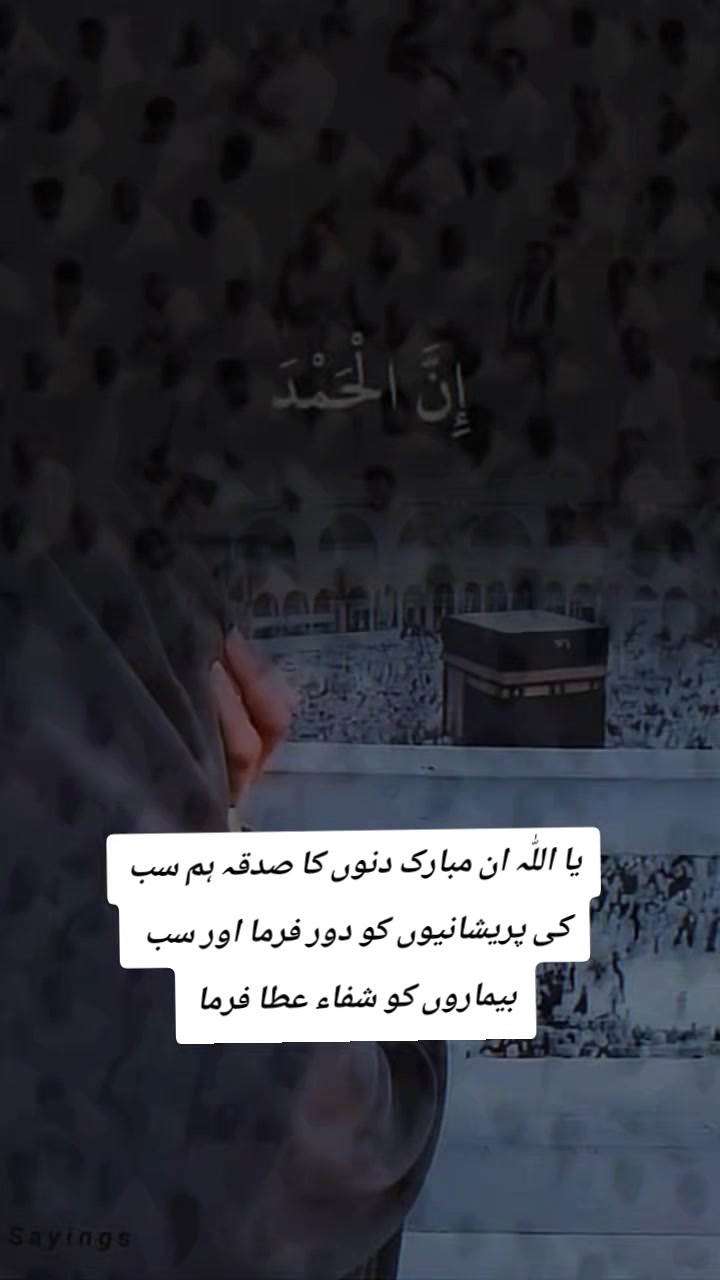 إِنَّ الْحَمْدَ
یا اللّٰہ ان مبارک دنوں کا صدقہ ہم سب
کی پریشانیوں کو دور فرما اور سب
بیماروں کو شفاء عطا فرما
Sayings